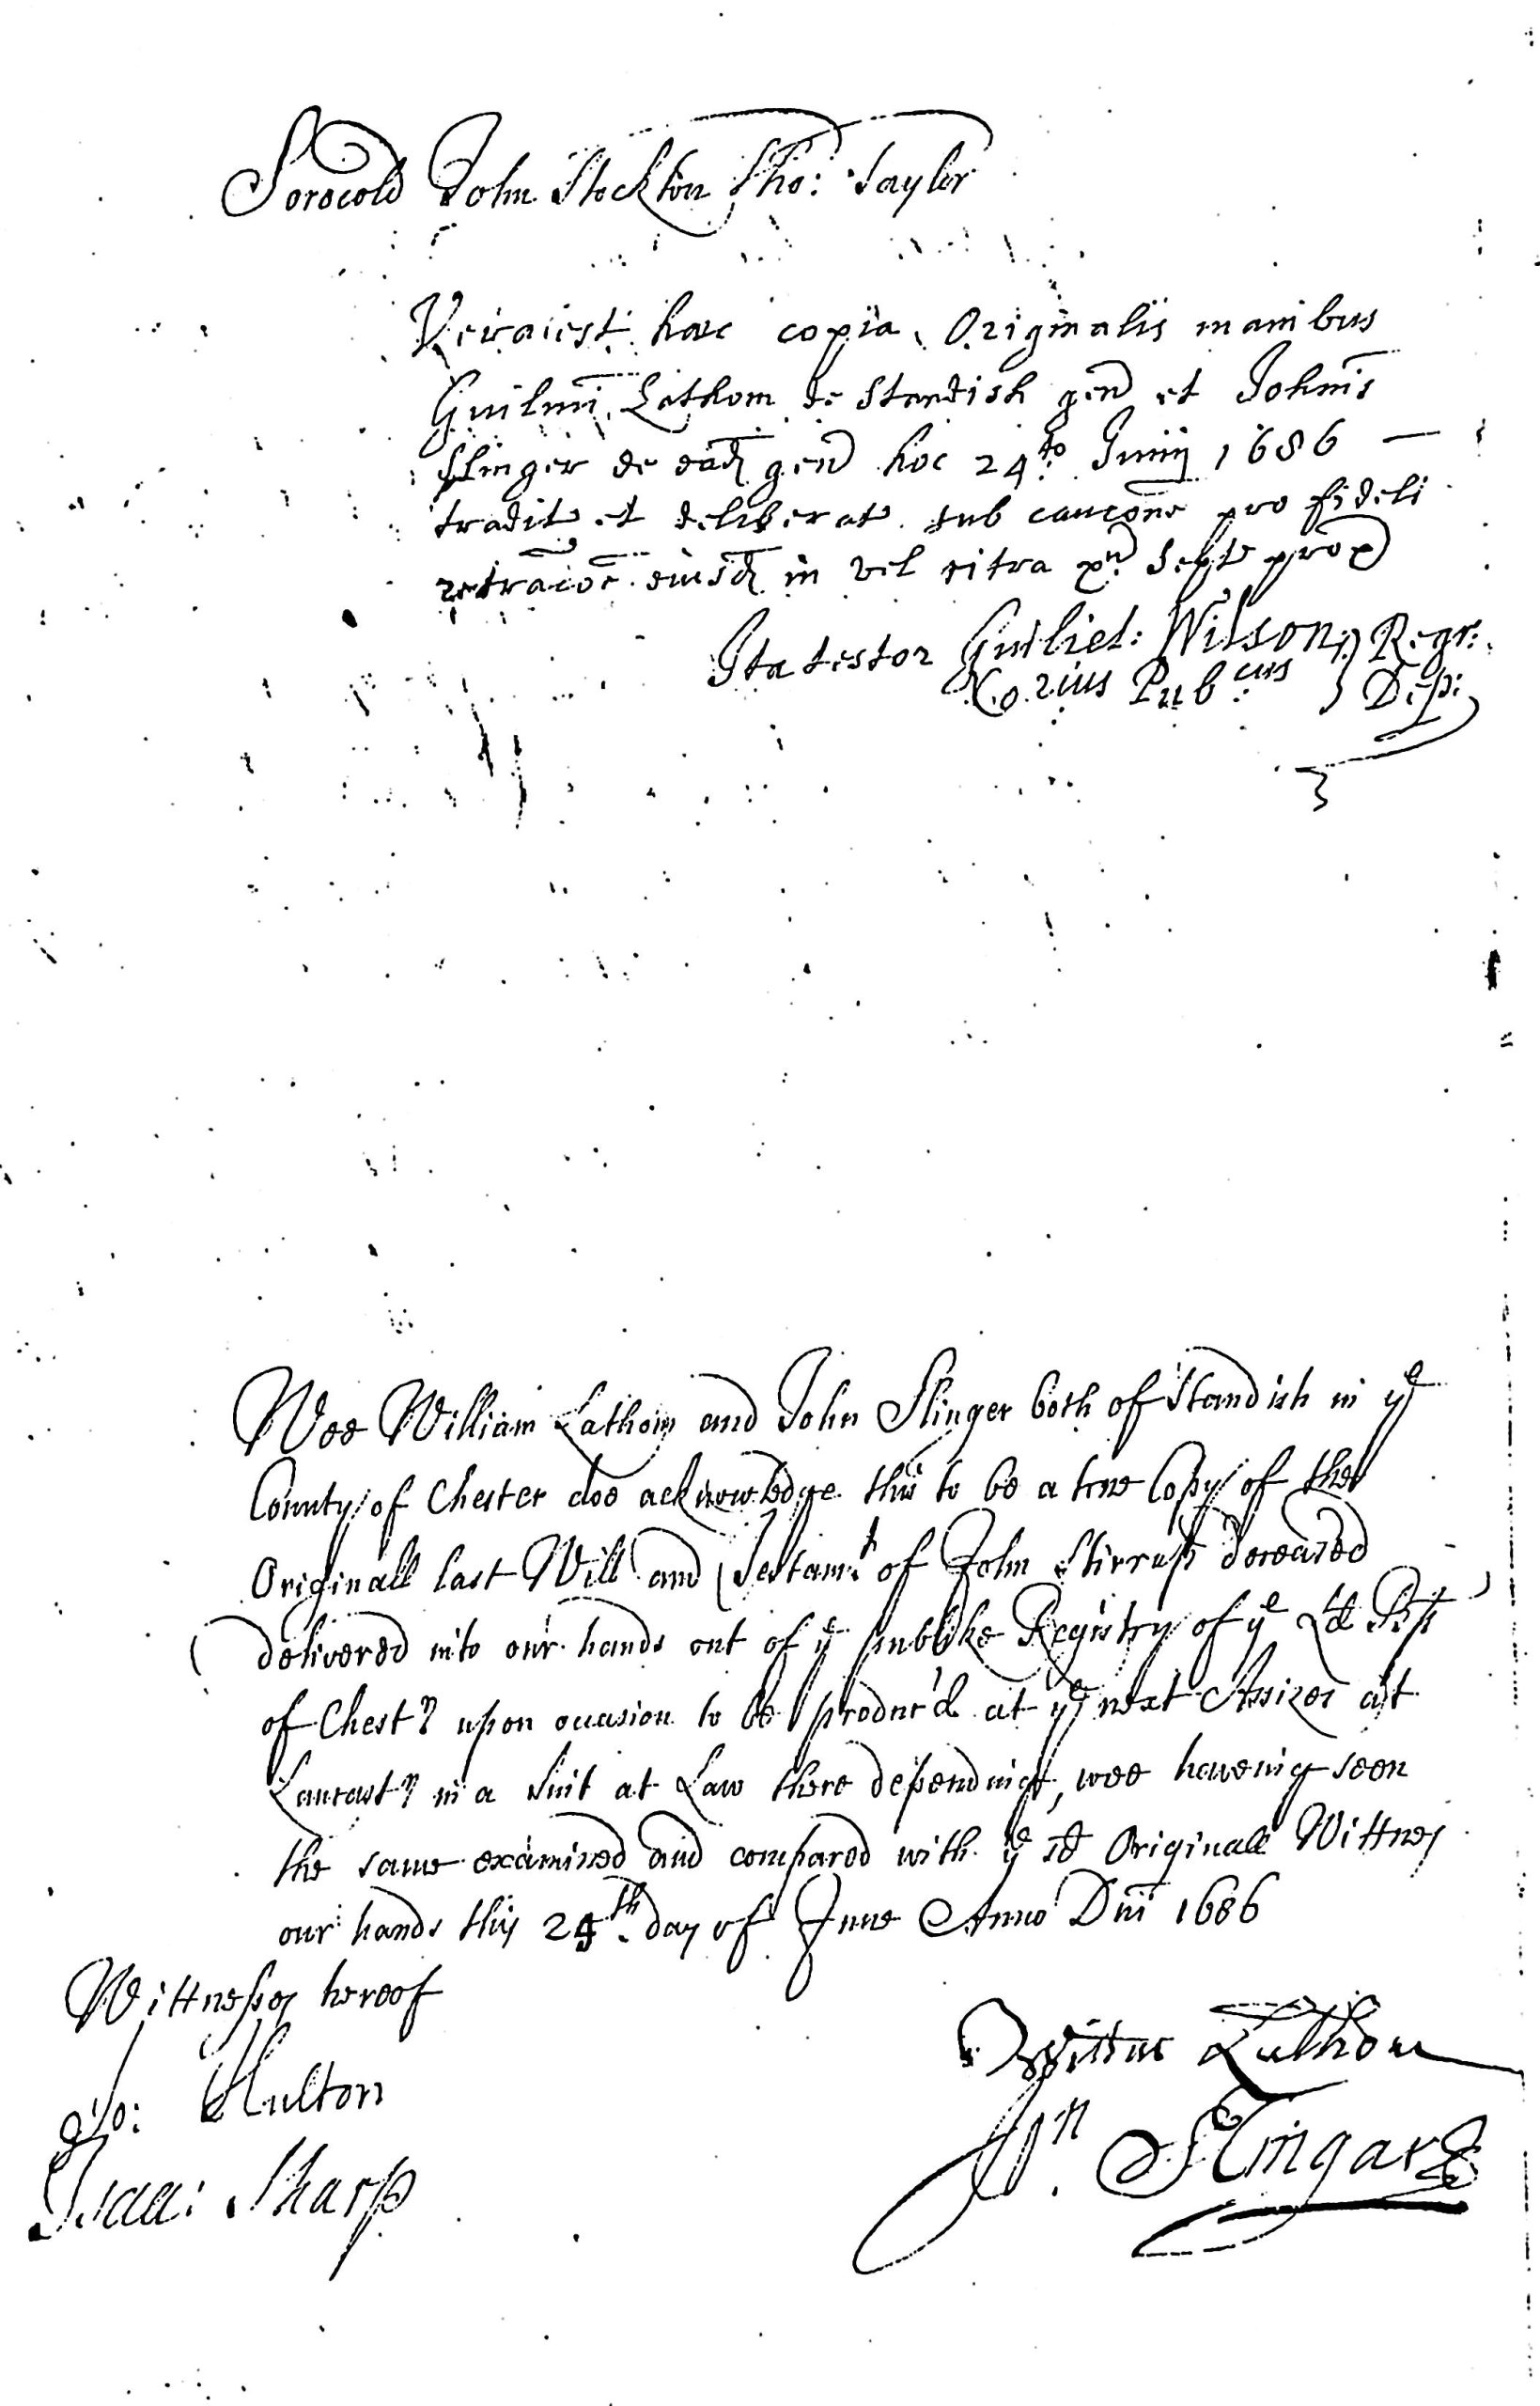 Sorocold John Stockton Tho: Taylor
Vera est haec copia Originalis manibus
Guilmi Lathom de Standish gen et Johnis
Slinger de ead gen hoc 24to Junij 1686 —
tradit et deliberat sub caucone pro fideli
retracoe eiusd in vel citra pn Sept prox
Ita testor Guiliel: Wilson Regr:
Norius Pubcus Dep:
Wee William Lathom and John Slinger both of Standish in ye
County of Chester doe acknowledge this to be a true Copy of the
Originall last Will and Testamt of John Stirrup deceased
delivered into our hands out of ye publike Registry of ye Ld Bp
of Chestr upon occasion to be produc'd at ye next Assizes att
Lancastr in a Suit at Law there depending, wee haveing seen
the same examined and compared with ye sd Originall Wittnes
our hands this 24th day of June Anno Dni 1686
Wittnesses hereof
Jo: Hulton
Isaa: Sharp
Lathom
Jn Slingar